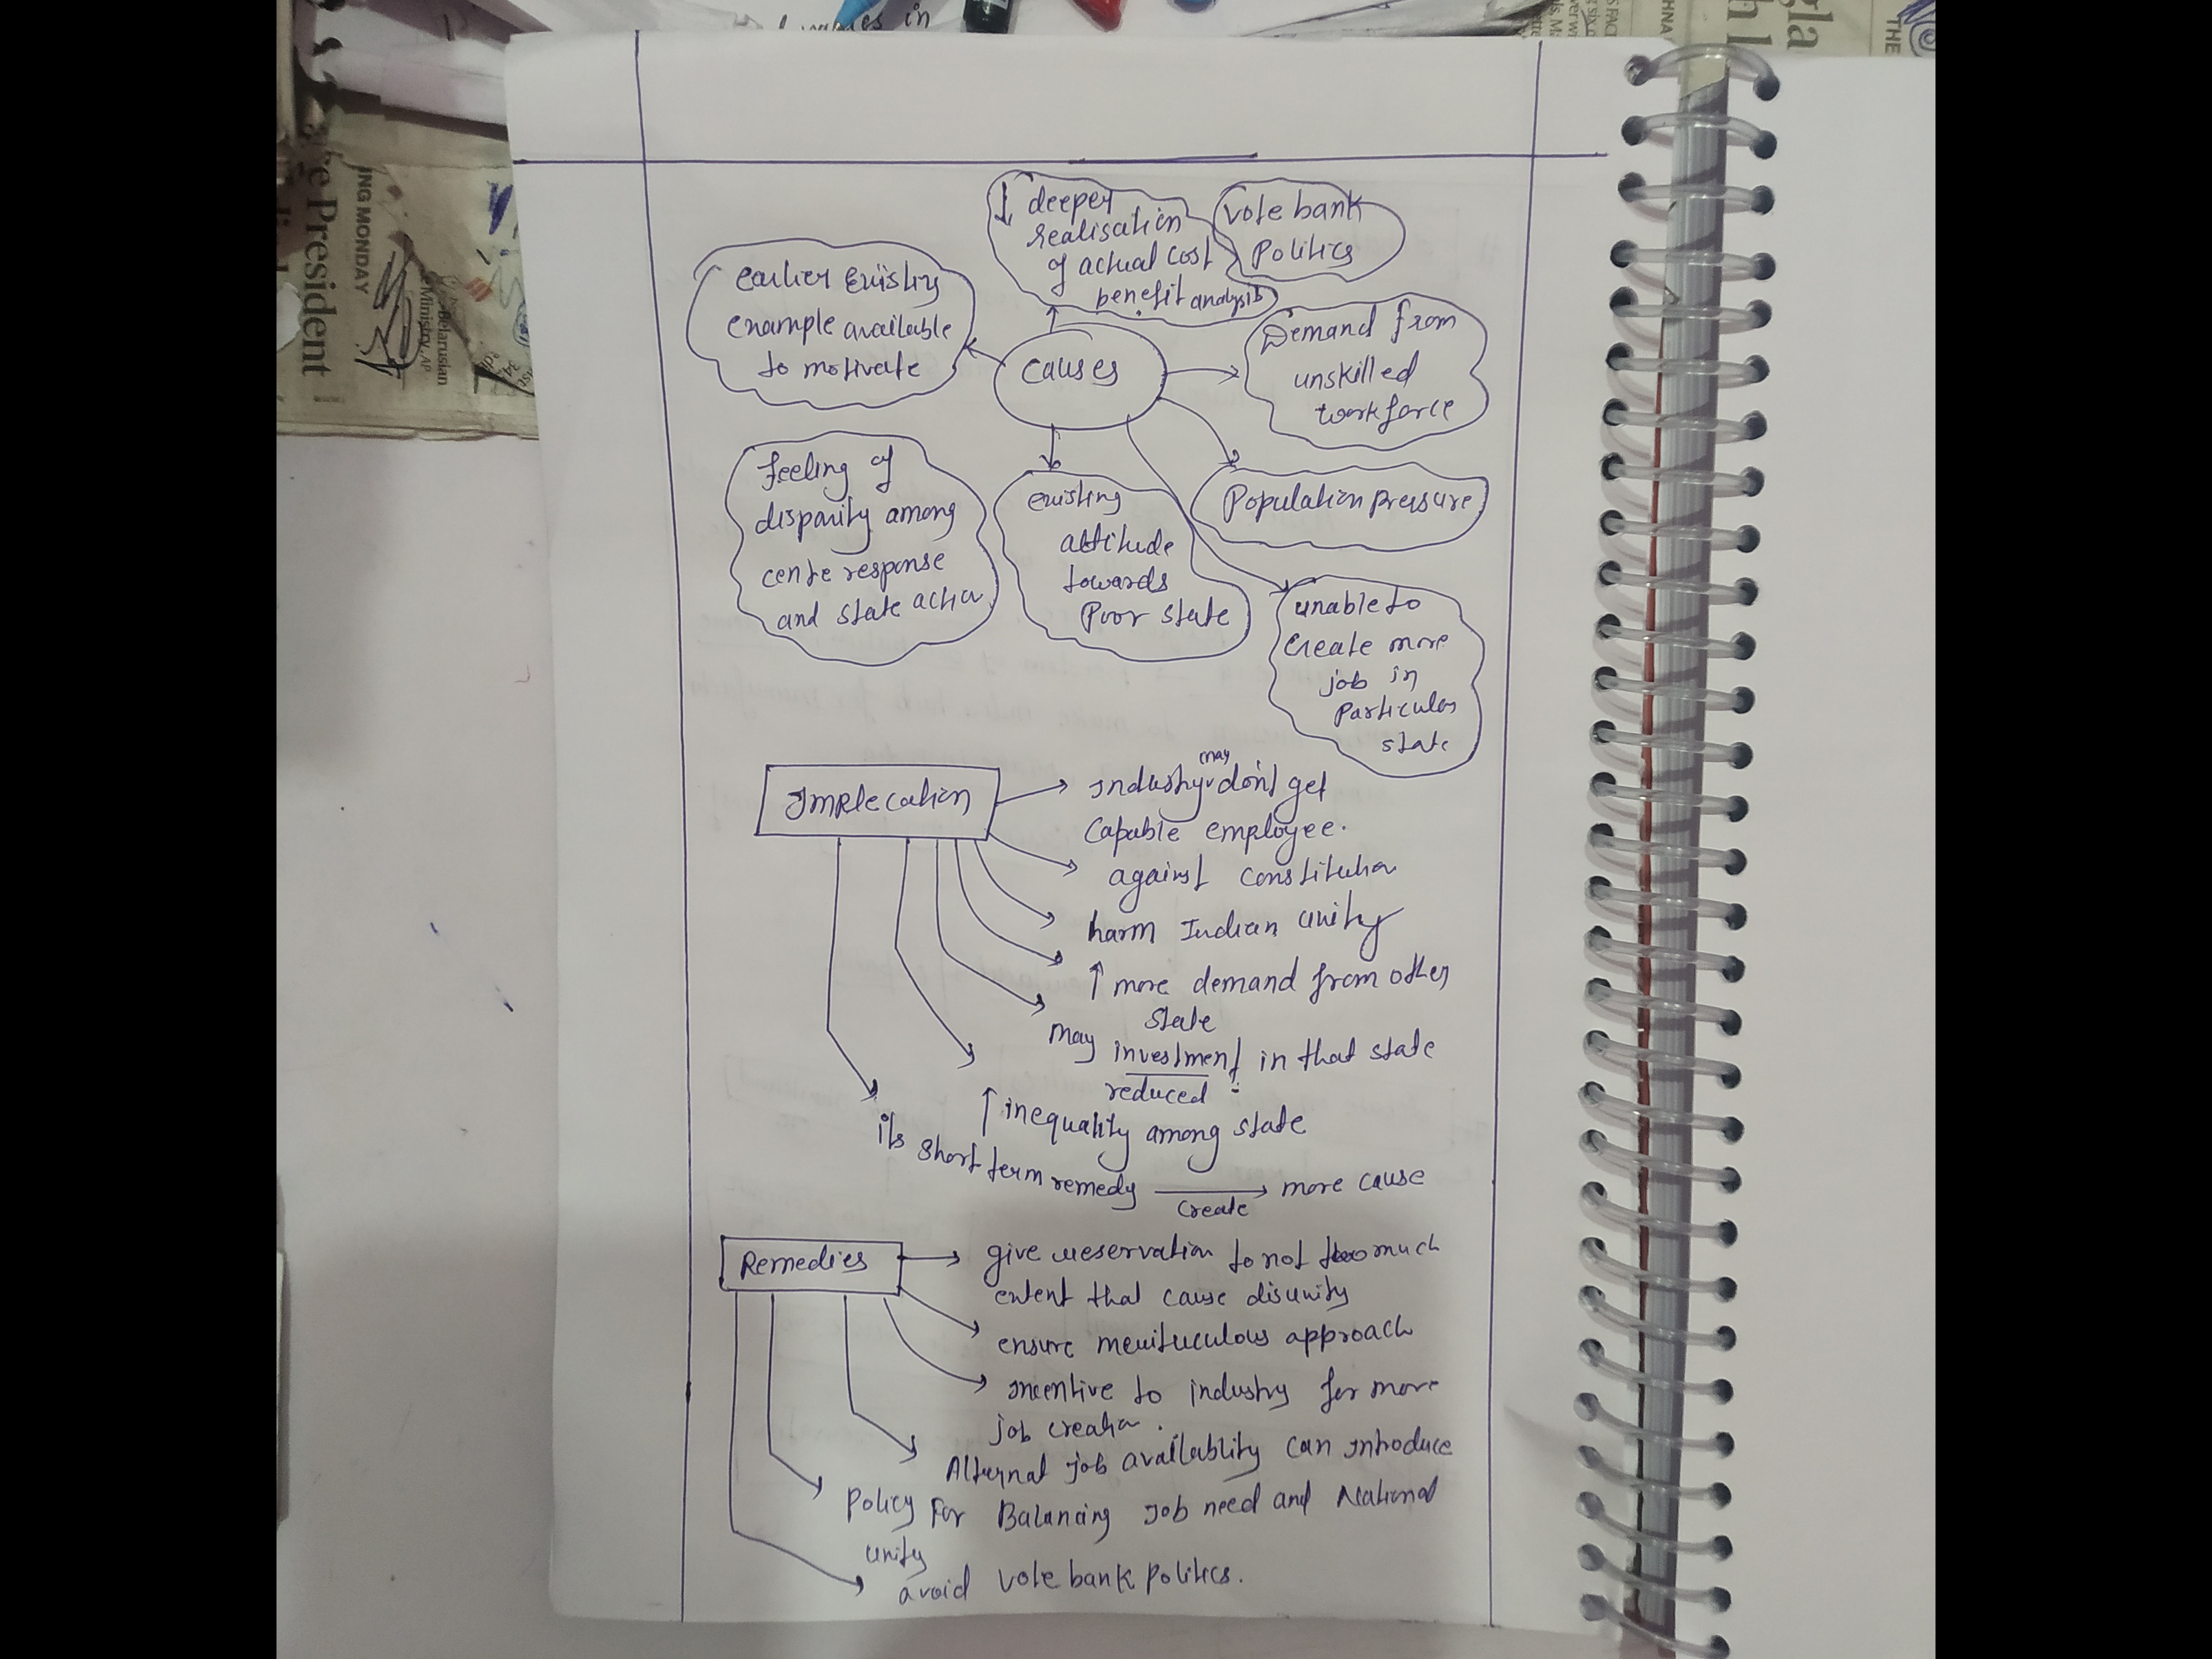 ↓ deeper
realisation
of actual cost
benefit analysis
vote bank
Politics
earlier existing
example available
to motivate
causes
Demand from
unskilled
workforce
Population pressure
feeling of
disparity among
cente response
and state action
existing
attitude
towards
Poor state
unable to
create more
job in
particular
state
Implecation
may
Industry don't get
capable employee.
against constitution
harm Indian unity
↑ more demand from other
state
may investment in that state
reduced
↑ inequality among state
its short term remedy → more cause
create
Remedies
give reservation to not too much
extent that cause disunity
ensure merituculous approach
Incentive to industry for more
job creation.
Alternat job availablity can introduce
Policy For Balancing Job need and National
unity
avoid vote bank politics.
THE
ING MONDAY
e President
Belarusian
Ministry, AP